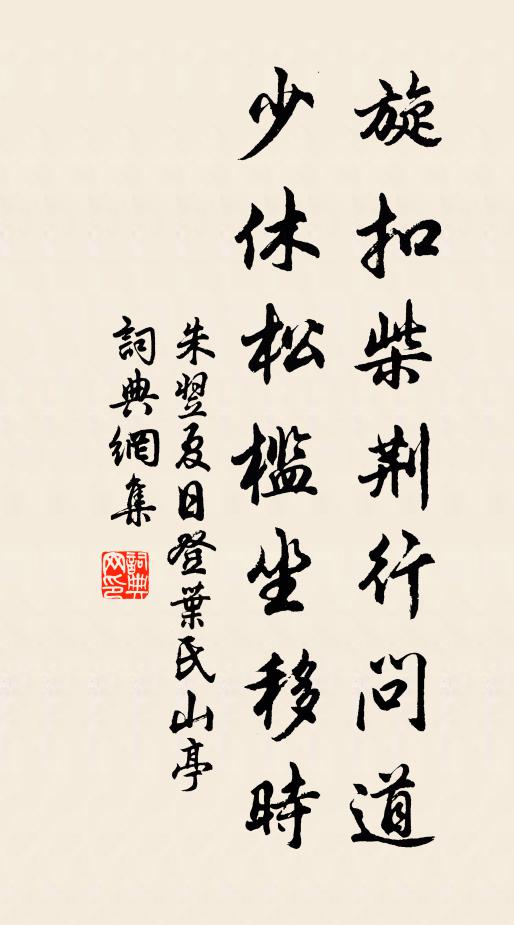 旋扣柴荆行問道
少休松檻坐移時
朱翌夏日登葉氏山亭
詞典網集
詞典网印